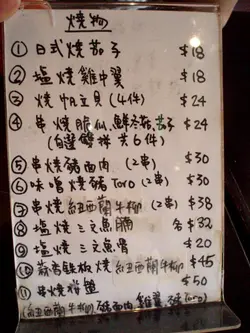 燒物
① 日式燒茄子 $18
② 塩燒雞中翼 $18
③ 燒帆立貝(4件) $24
④ 串燒脆仙、鮮冬菇、茄子 $24
(自選雙拼共6件)
⑤ 串燒豬面肉(2串) $30
⑥ 味噌燒豬Toro(2串) $30
⑦ 串燒紐西蘭牛柳(2串) $38
⑧ 塩燒三文魚腩 $32
⑨ 塩燒三文魚 $20
⑩ 蒜香鉄板燒紐西蘭牛柳 $45
⑪ 串燒拼盤 $50
(紐西蘭牛柳 豬面肉 雞翼 豬Toro)